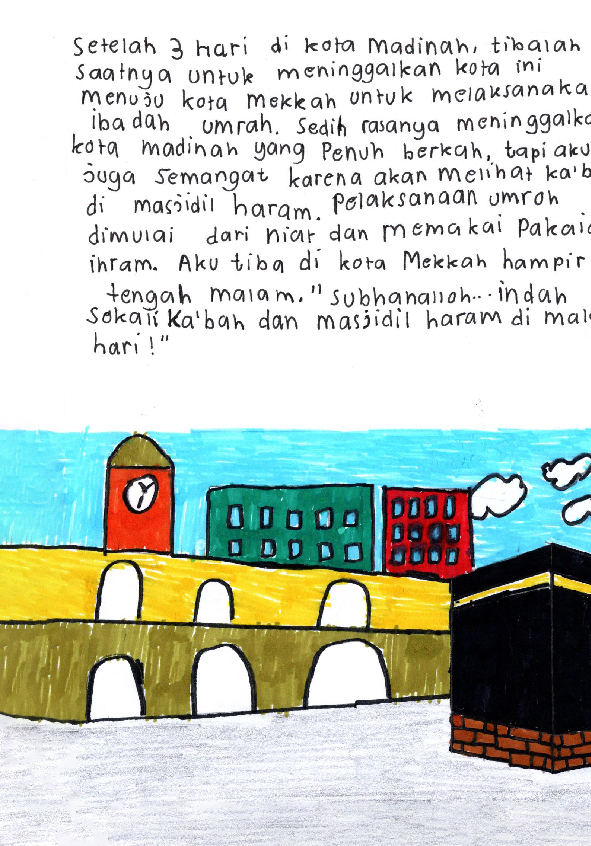 Setelah 3 Hari di kota Madinah, tibalah
saatnya untuk meninggalkan kota ini
menuju kota Mekkah untuk melaksanaka
ibadah umrah. Sedih rasanya meninggalka
kota madinah yang Penuh berkah, tapi aku
juga semangat karena akan melihat ka'b
di masjidil haram. Pelaksanaan umroh
dimulai dari niat dan memakai Pakaia
ihram. Aku tiba di kota Mekkah hampir
tengah malam." Subhanalloh... indah
Sekali Ka'bah dan masjidil haram di mal
hari!"